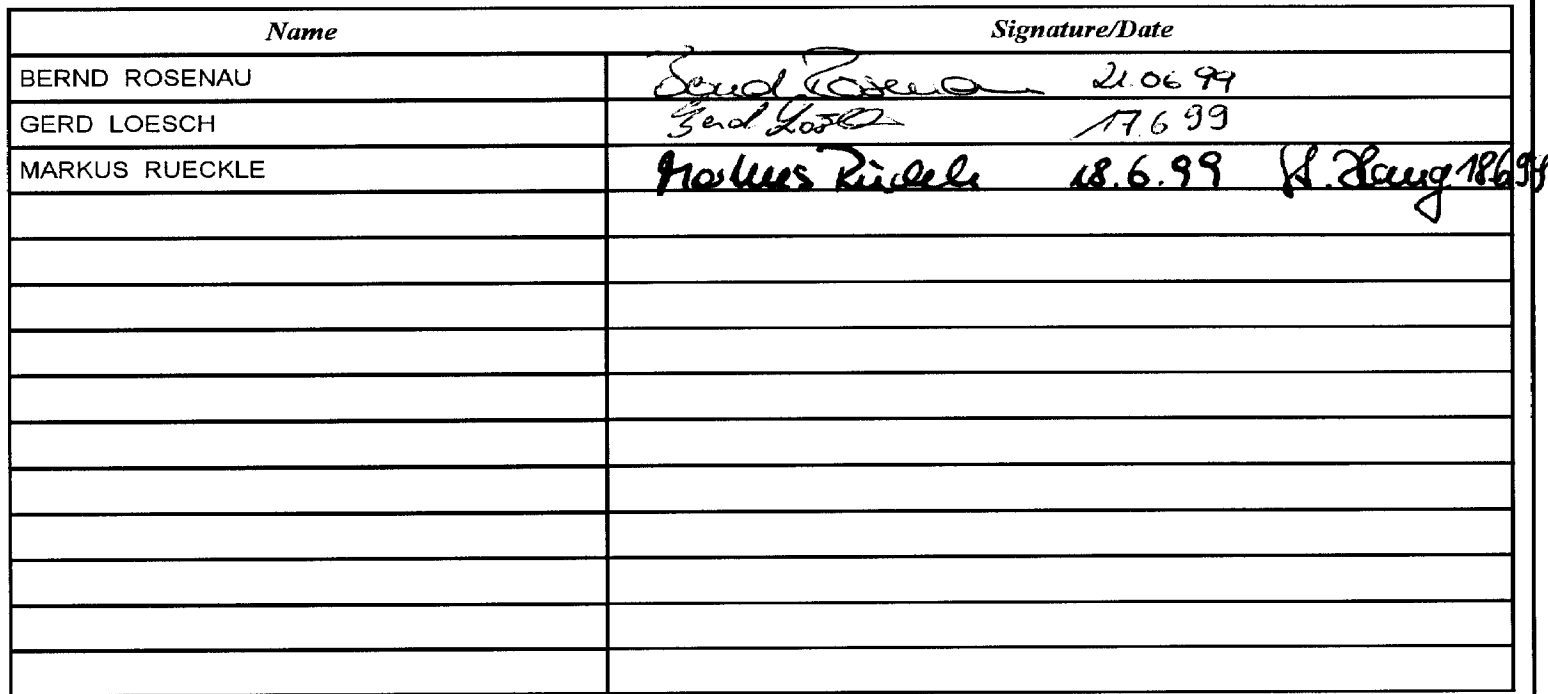 Name Signature/Date
BERND ROSENAU Bernd Rosenau 21.06 99
GERD LOESCH Gerd Lösch 17.6 99
MARKUS RUECKLE Markus Rückle 18.6.99 H. Haug 18.6.99